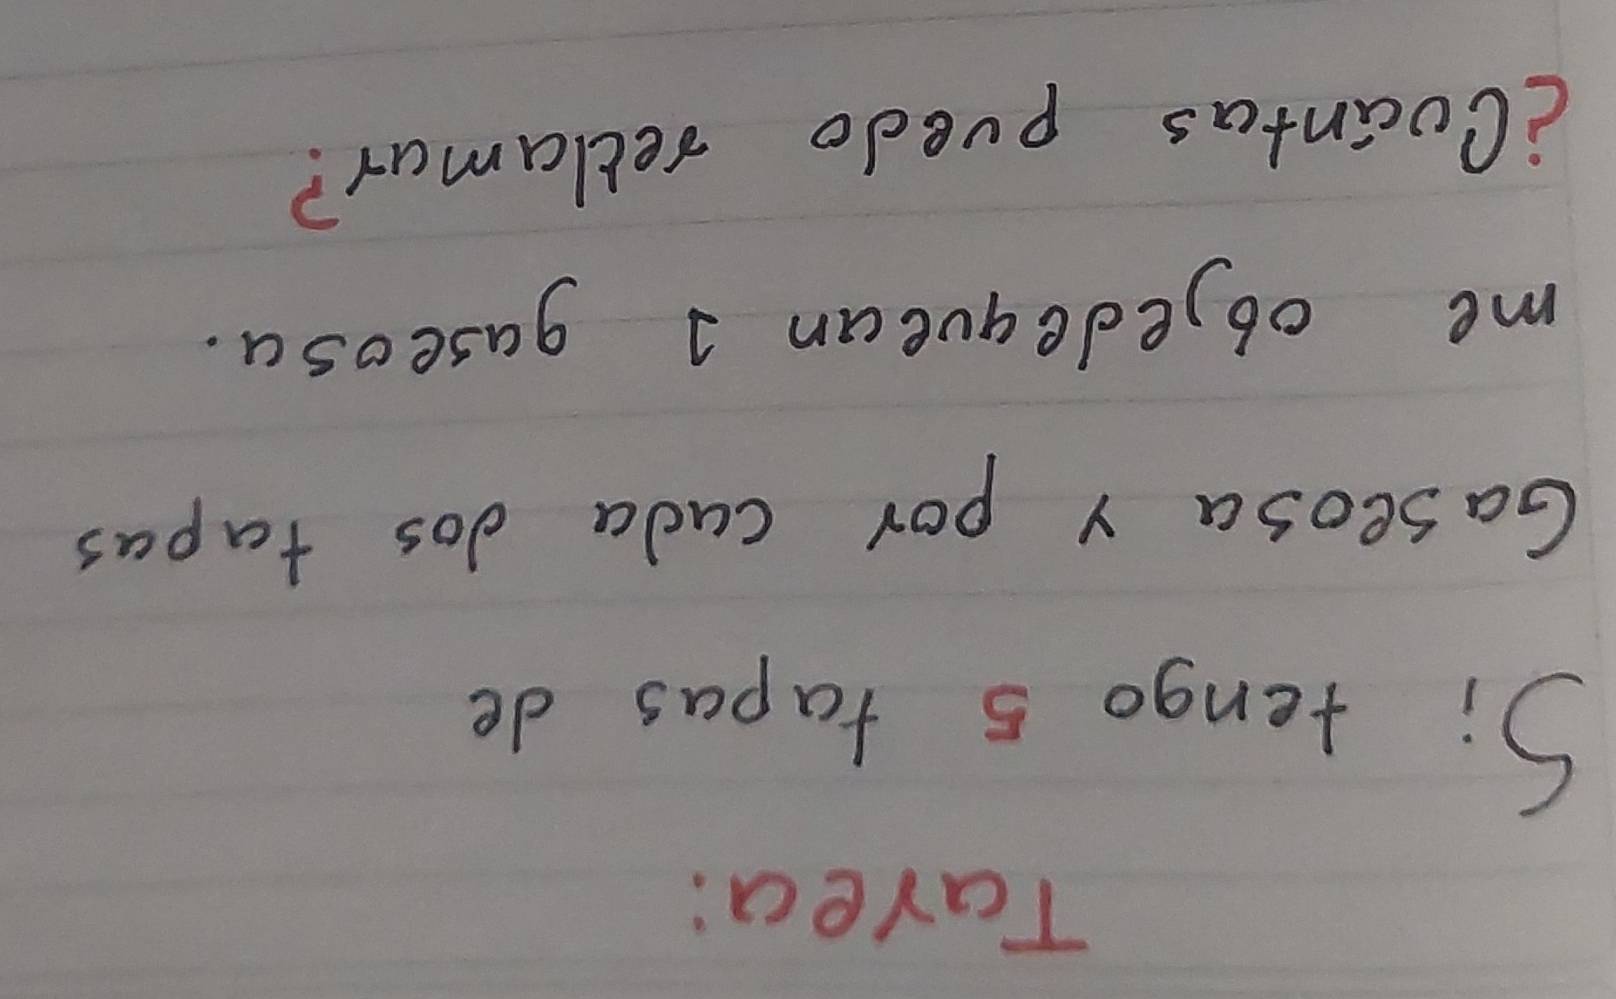 Tarea:
Si tengo 5 tapas de
Gaseosa y por cada dos tapas
me objedequean 1 gaseosa.
¿Cuántas puedo reclamar?